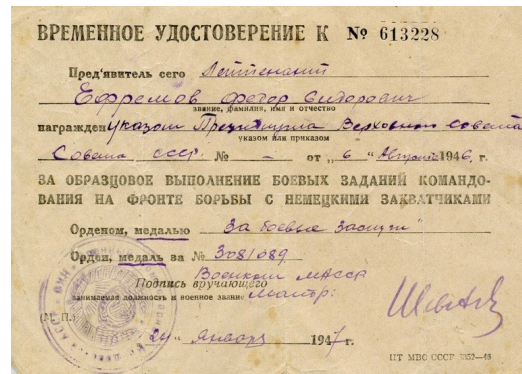 ВРЕМЕННОЕ УДОСТОВЕРЕНИЕ К № 613228
Пред'явитель сего Лейтенант
Ефремов Федор Сидорович
звание, фамилия, имя и отчество
награжден Указом Президиума Верховного Совета
указом или приказом
Совета СССР. № - от „6" Августа 1946 г.
ЗА ОБРАЗЦОВОЕ ВЫПОЛНЕНИЕ БОЕВЫХ ЗАДАНИЙ КОМАНДО-
ВАНИЯ НА ФРОНТЕ БОРЬБЫ С НЕМЕЦКИМИ ЗАХВАТЧИКАМИ
Орденом, медалью „За боевые заслуги"
Орден, медаль за № 3081089
Военком МАССР
Подпись вручающего
занимаемая должность и военное звание
(М. П.)
24 " января 1947 г.
ЦТ МВС СССР 3352—46